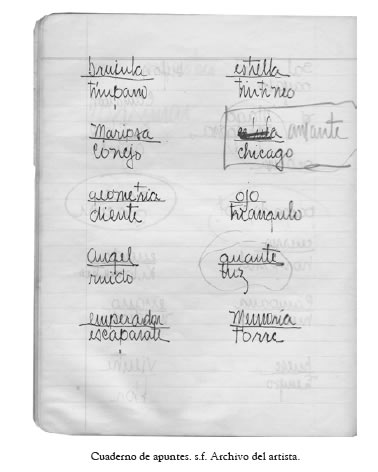 brujula
timpano
Mariposa
Conejo
geometria
diente
angel
ruido
emperador
escaparate
estrella
tintineo
amante
chicago
ojo
triangulo
guante
luz
Memoria
Torre
Cuaderno de apuntes. s.f. Archivo del artista.